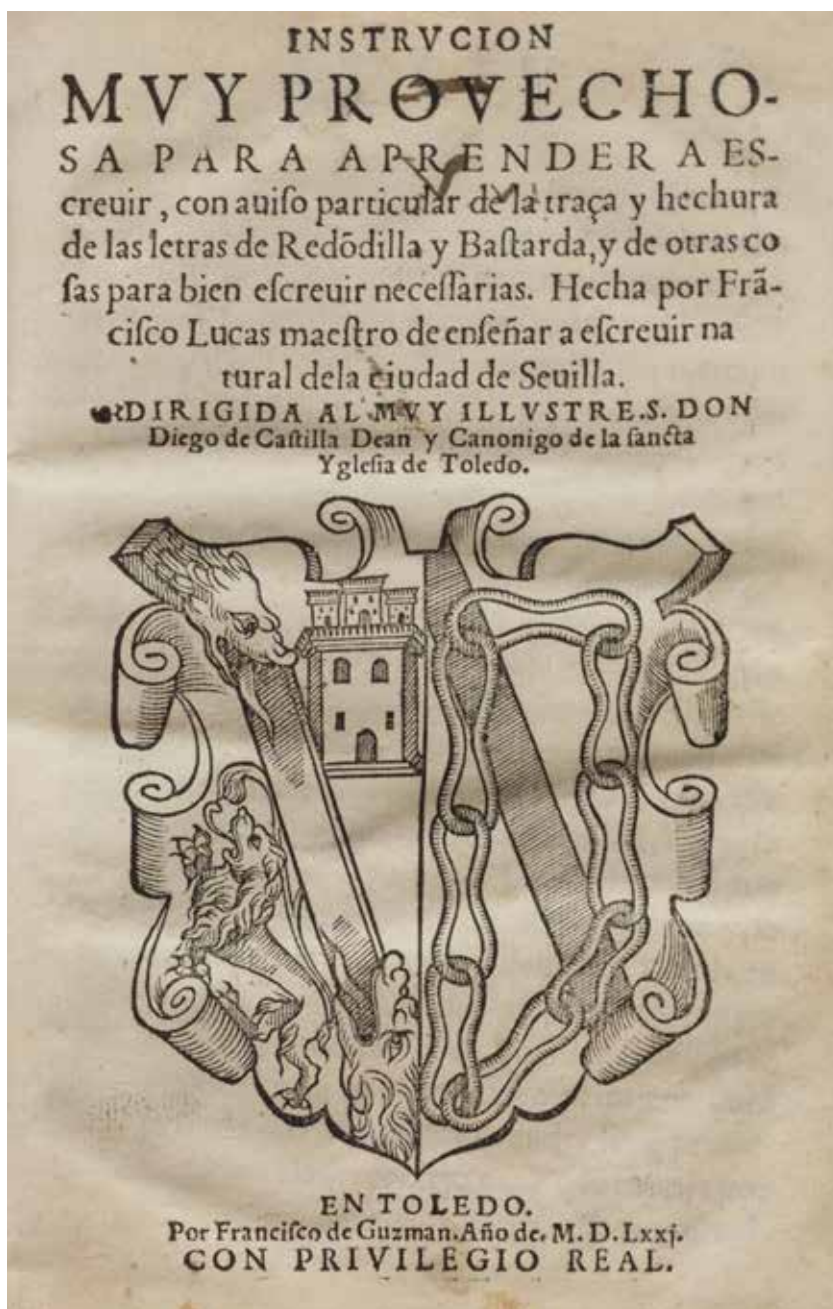 INSTRVCION
MVY PROVECHO-
SA PARA APRENDER A ES-
creuir, con auiſo particular de la traça y hechura
de las letras de Redõdilla y Baſtarda, y de otras co
ſas para bien eſcreuir neceſſarias. Hecha por Frã-
ciſco Lucas maeſtro de enſeñar a eſcreuir na
tural dela ciudad de Seuilla.
☙DIRIGIDA AL MVY ILLVSTRE.S. DON
Diego de Caſtilla Dean y Canonigo de la ſancta
Ygleſia de Toledo.
EN TOLEDO.
Por Franciſco de Guzman. Año de. M. D. Lxxj.
CON PRIVILEGIO REAL.